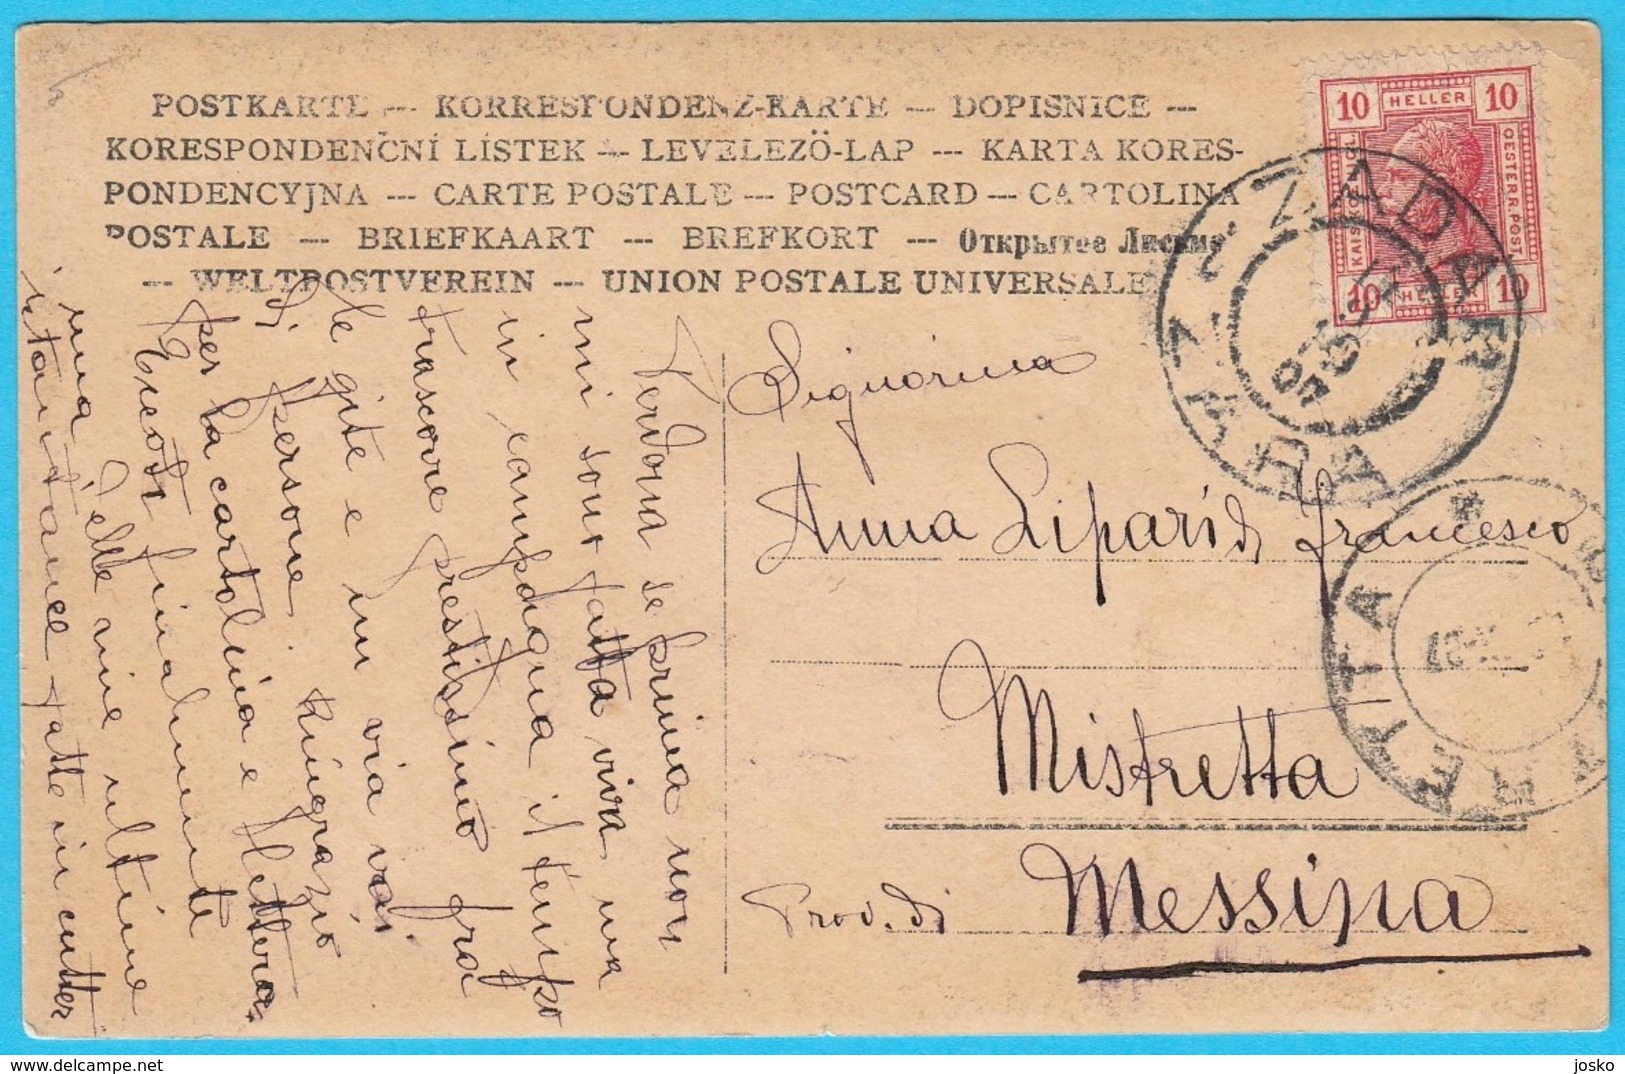 POSTKARTE -- KORRESPONDENZ-KARTE -- DOPISNICE --
KORESPONDENČNÍ LÍSTEK -- LEVELEZÖ-LAP -- KARTA KORES-
PONDENCYJNA -- CARTE POSTALE -- POSTCARD -- CARTOLINA
POSTALE -- BRIEFKAART -- BREFKORT -- Открытое Письмо
-- WELTPOSTVEREIN -- UNION POSTALE UNIVERSALE
10 HELLER 10
KAIS. KOENIGL.
OESTERR. POST
10 HELLER 10
ZADAR
ZARA
MISTRETTA
Signorina
Anna Lipari di francesco
Mistretta
Prov. di Messina
Perdona se prima non
mi son fatta viva, ma
in campagna il tempo
trascorre prestissimo fra
le gite e un via vai
di persone. Ringrazio
per la cartolina e lettera.
Eccoti finalmente
una delle mie ultime
istantanee fatte in cutter
josko